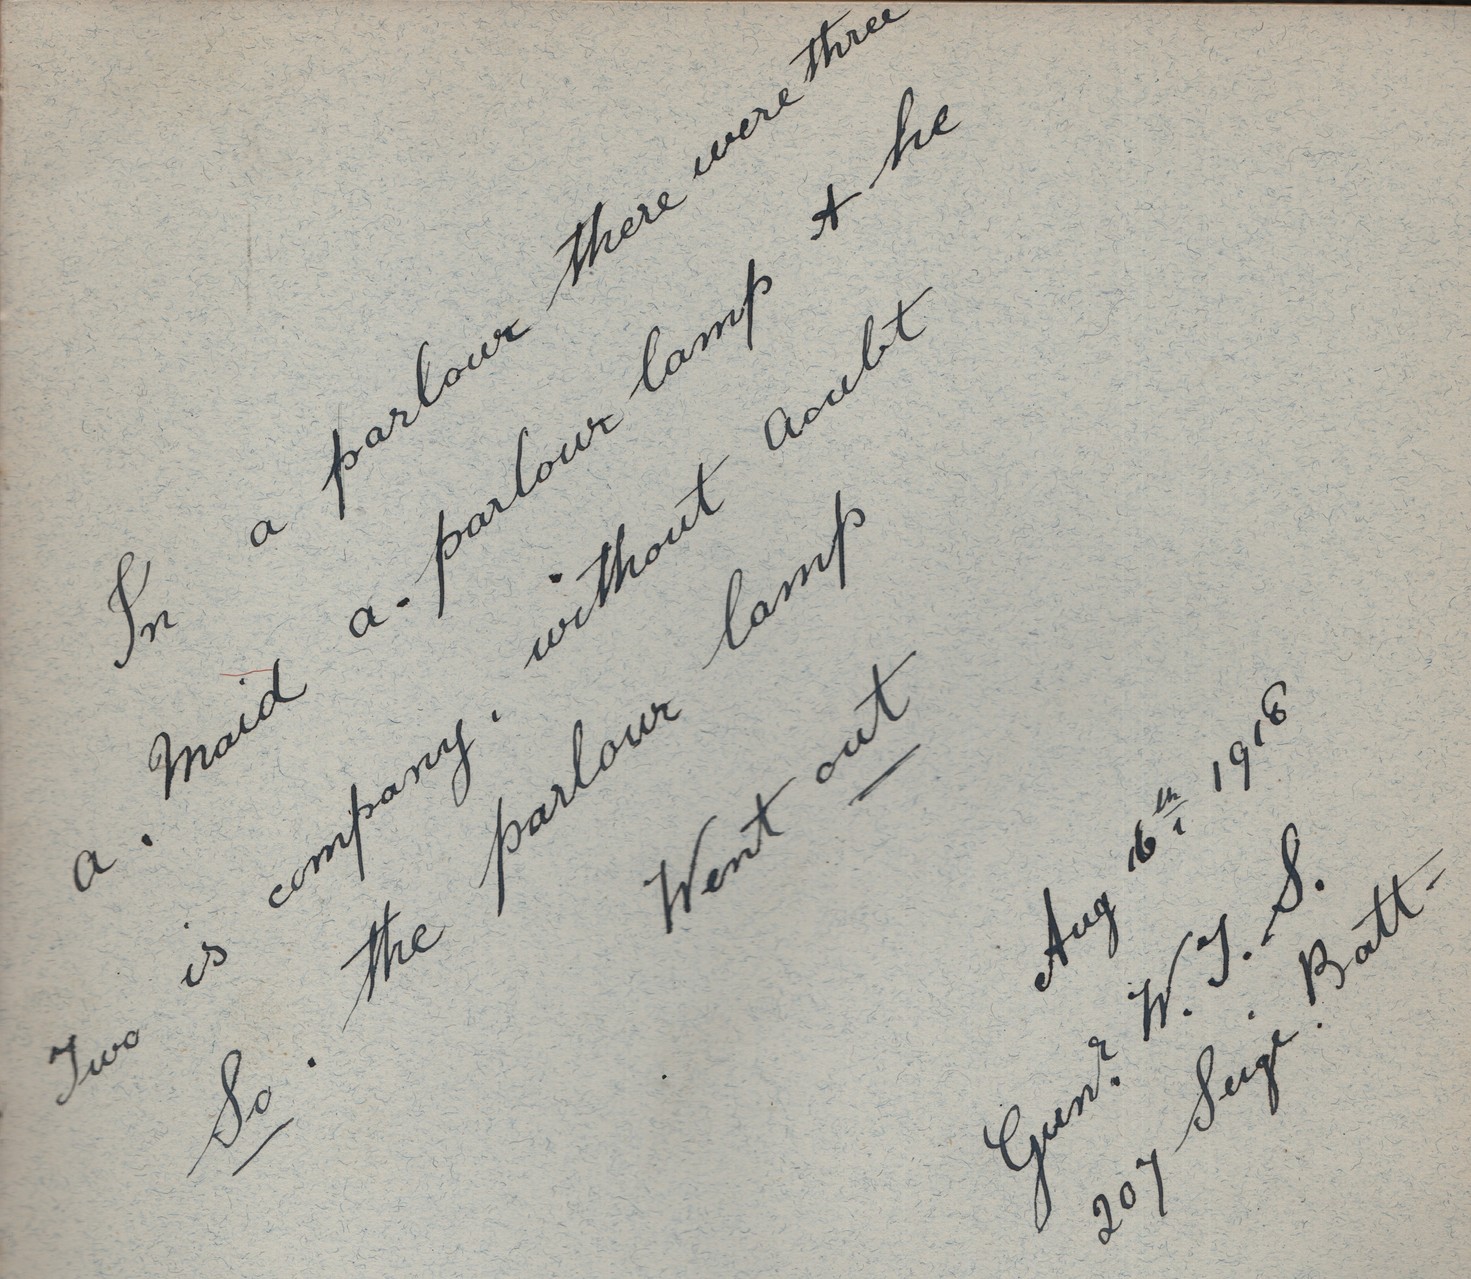 In a parlour there were three
a. Maid a-parlour lamp & he
Two is company. without doubt
So. the parlour lamp
Went out
Aug 16th 1916
Gunr. W. J. S.
207 Seige. Batt-